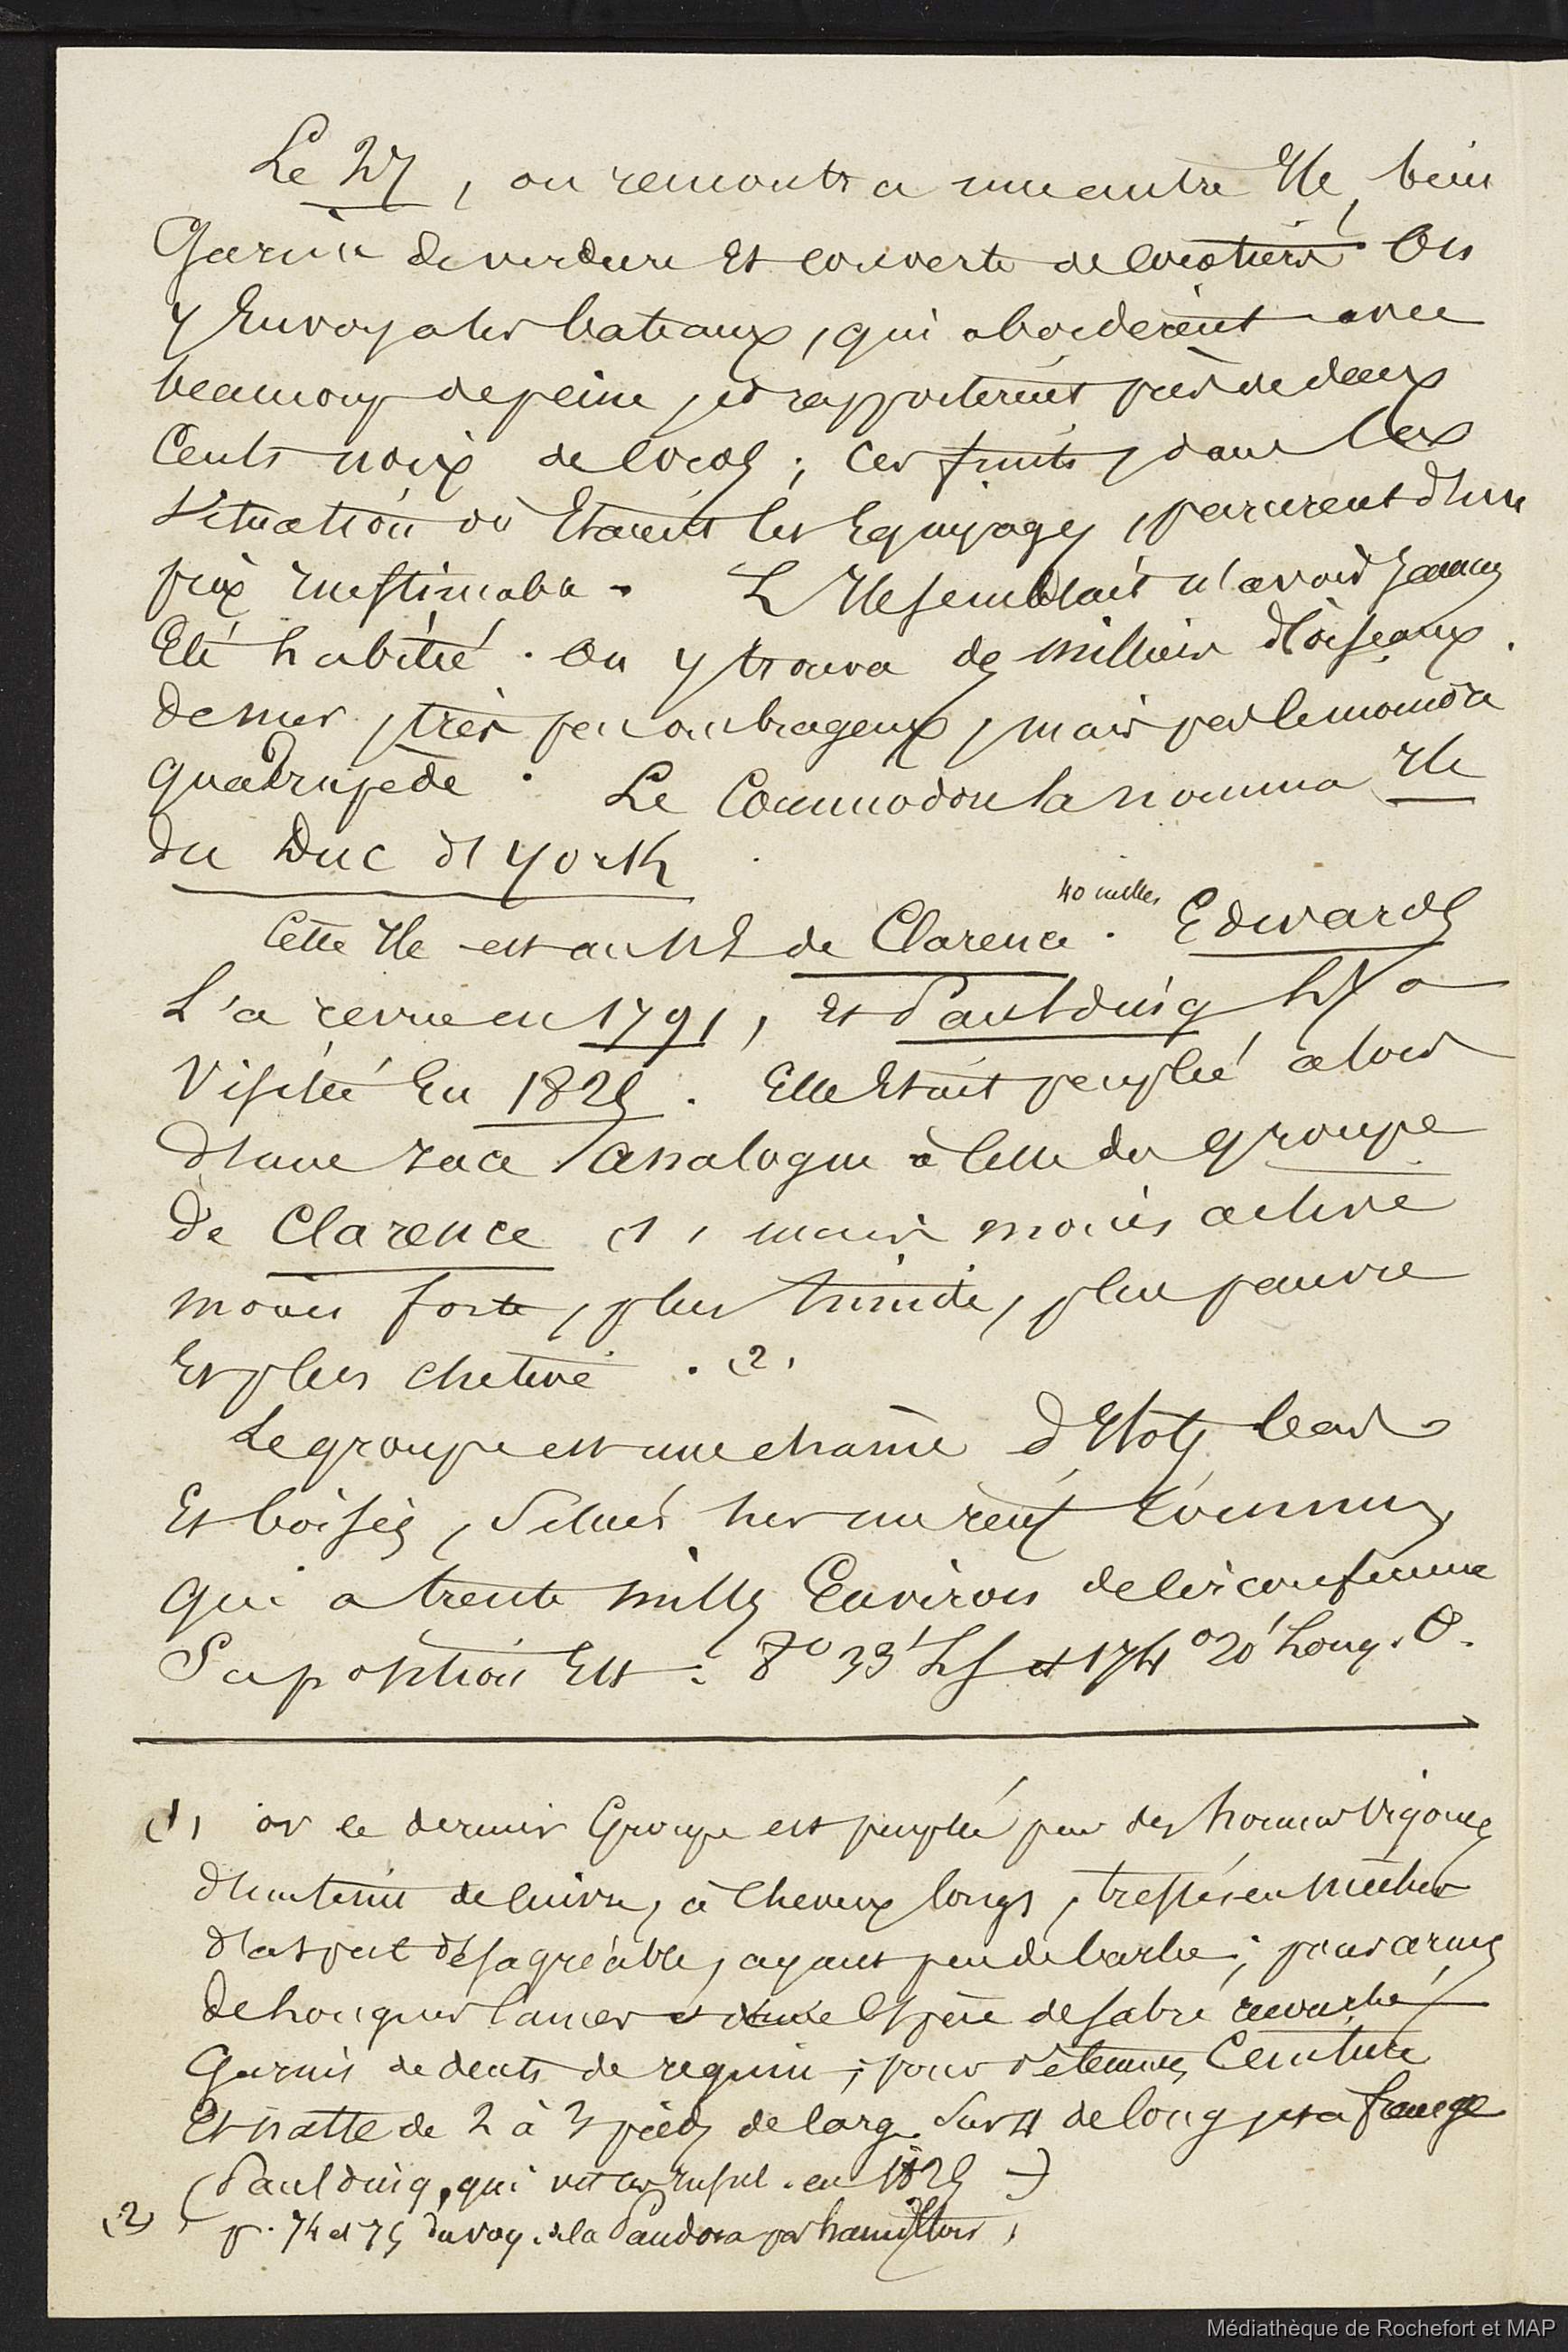 Le 27, on rencontra une autre Ile, bien
Garnie de verdure Et couverte de Cocotiers. On
y Envoya les bateaux, qui aborderent avec
beaucoup de peine, et rapporterent près de deux
Cents noix de Cocos; Ces fruits, dans la
Situation où Etaient les Equipages, parurent d'un
prix inestimable. L'Ile semblait n'avoir jamais
Eté habitée. On y trouva des milliers d'oiseaux
de mer, très peu ombrageux, mais pas le moindre
quadrupede. Le Commodore la nomma Ile
du Duc d'York
40 milles
Cette Ile est au N E de Clarence. Edwards
L'a revue en 1791, Et Paulding l'y a
Visitée En 1825. Elle Etait peuplée alors
d'une race analogue à Celle du groupe
de Clarence (1), mais moins active
moins forte, plus timide, plus pauvre
Et plus chetive. (2)
Le groupe est une chaine d'Ilots bas
Et boisés, Situés sur un recif Commun,
qui a trente milles Environ de Circonference
Sa position Est: 8° 33' L S et 174° 20' Long. O.
(1) or ce dernier Groupe est peuplé par des hommes Vigoureux
d'un teint de Cuivre, à Cheveux longs, tressés en mèches
d'aspect désagréable, ayant peu de barbe; pour armes
de longues lances et une Espèce de sabre recourbé
Garnis de dents de requin; pour vêtements Ceinture
Et natte de 2 à 3 pieds de large Sur 4 de long, et à frange
(Paulding, qui vit ces insul. en 1825 —)
(2) p. 74 et 75 du voy. de la Pandora par hamilton,
Médiathèque de Rochefort et MAP